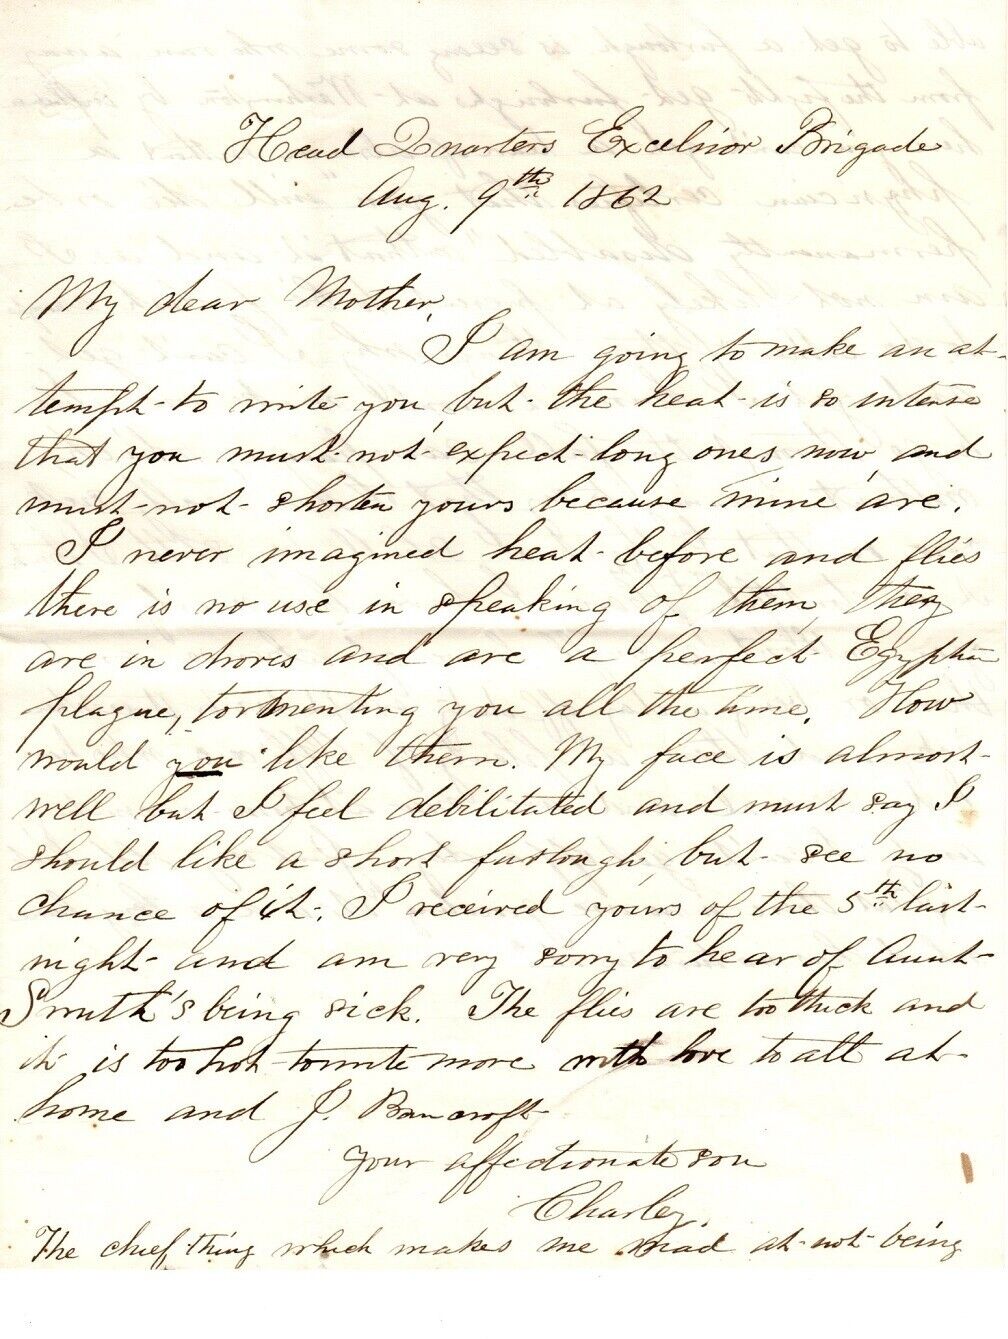 Head Quarters Excelsior Brigade
Aug. 9th 1862
My dear Mother,
I am going to make an at-
tempt to write you, but the heat is so intense
that you must not expect long ones now, and
must not shorten yours because mine are.
I never imagined heat before and flies
there is no use in speaking of them, they
are in droves and are a perfect Egyptian
plague, tormenting you all the time. How
would you like them. My face is almost
well but I feel debilitated and must say I
should like a short furlough, but see no
chance of it. I received yours of the 5th last
night and am very sorry to hear of Aunt
Smith's being sick. The flies are too thick and
it is too hot to write more with love to all at
home and J. Bancroft
Your affectionate son
Charley.
The chief thing which makes me mad at not being